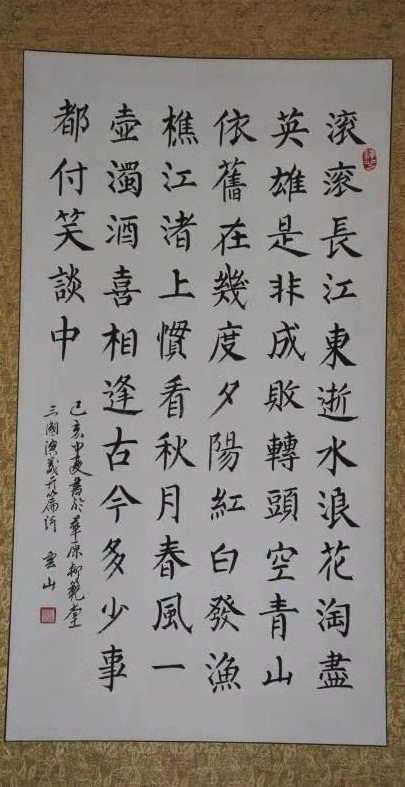 滚滚長江東逝水浪花淘盡
英雄是非成敗轉頭空青山
依舊在幾度夕陽紅白發漁
樵江渚上慣看秋月春風一
壺濁酒喜相逢古今多少事
都付笑談中
己亥中夏書於華原柳範堂
三國演義开篇詞 雲山